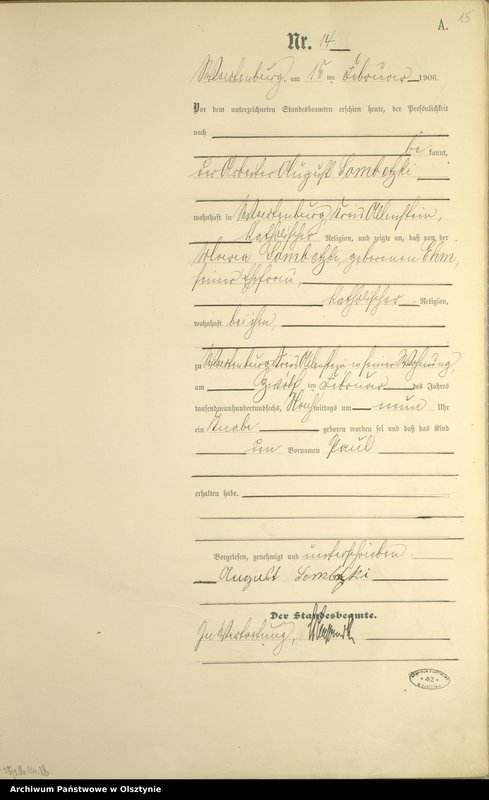 15
A.
Nr. 14
Wartenburg, am 15 ten Februar 1906.
Vor dem unterzeichneten Standesbeamten erschien heute, der Persönlichkeit
nach
be kannt,
der Arbeiter August Sombetzki
wohnhaft in Wartenburg, Kreis Allenstein,
katholischer Religion, und zeigte an, daß von der
Maria Sombetzki geborenen Ehm,
seiner Ehefrau,
katholischer Religion,
wohnhaft bei ihm,
zu Wartenburg, Kreis Allenstein in seiner Wohnung
am zwölf ten Februar des Jahres
tausendneunhundertundsechs, Nachmittags um neun Uhr
ein Knabe geboren worden sei und daß das Kind
den Vornamen Paul
erhalten habe.
Vorgelesen, genehmigt und unterschrieben.
August Sombetzki
Der Standesbeamte.
In Vertretung,
42
Archiwum Państwowe w Olsztynie